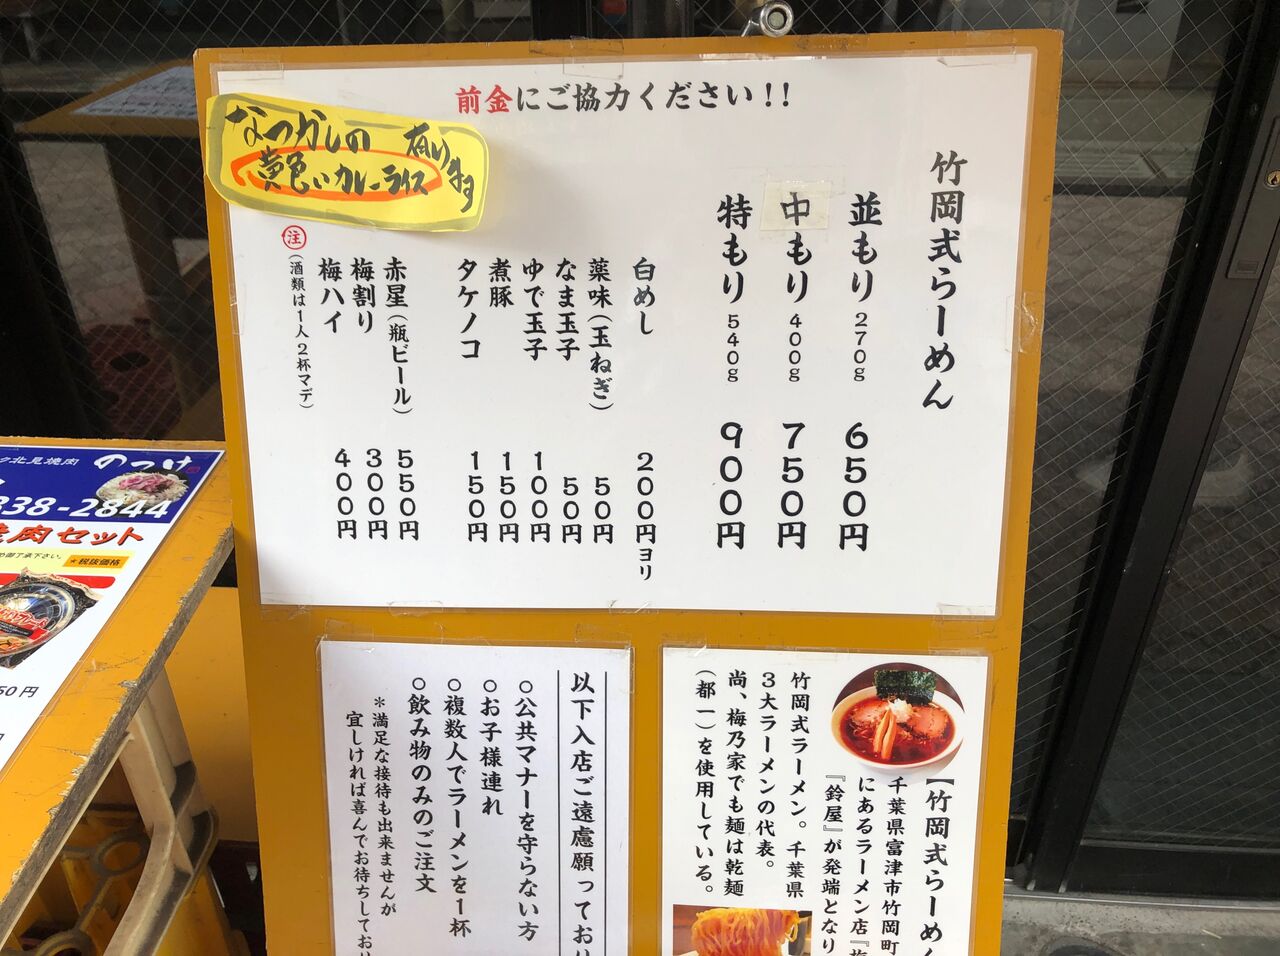 前金にご協力ください!!
なつかしの
黄色いカレーライス
有ります
竹岡式らーめん
並もり 270g 650円
中もり 400g 750円
特もり 540g 900円
白めし 200円ヨリ
薬味(玉ねぎ) 50円
なま玉子 50円
ゆで玉子 100円
煮豚 150円
タケノコ 150円
赤星(瓶ビール) 550円
梅割り 300円
梅ハイ 400円
注
(酒類は1人2杯マデ)
【竹岡式らーめん
千葉県富津市竹岡町
にあるラーメン店『梅
『鈴屋』が発端となり
竹岡式ラーメン。千葉県
3大ラーメンの代表。
尚、梅乃家でも麺は乾麺
(都一)を使用している。
以下入店ご遠慮願っており
○公共マナーを守らない方
○お子様連れ
○複数人でラーメンを1杯
○飲み物のみのご注文
*満足な接待も出来ませんが
宜しければ喜んでお待ちしており
北見焼肉
のっけ
838-2844
焼肉セット
御了承下さい。
*税抜価格
50円